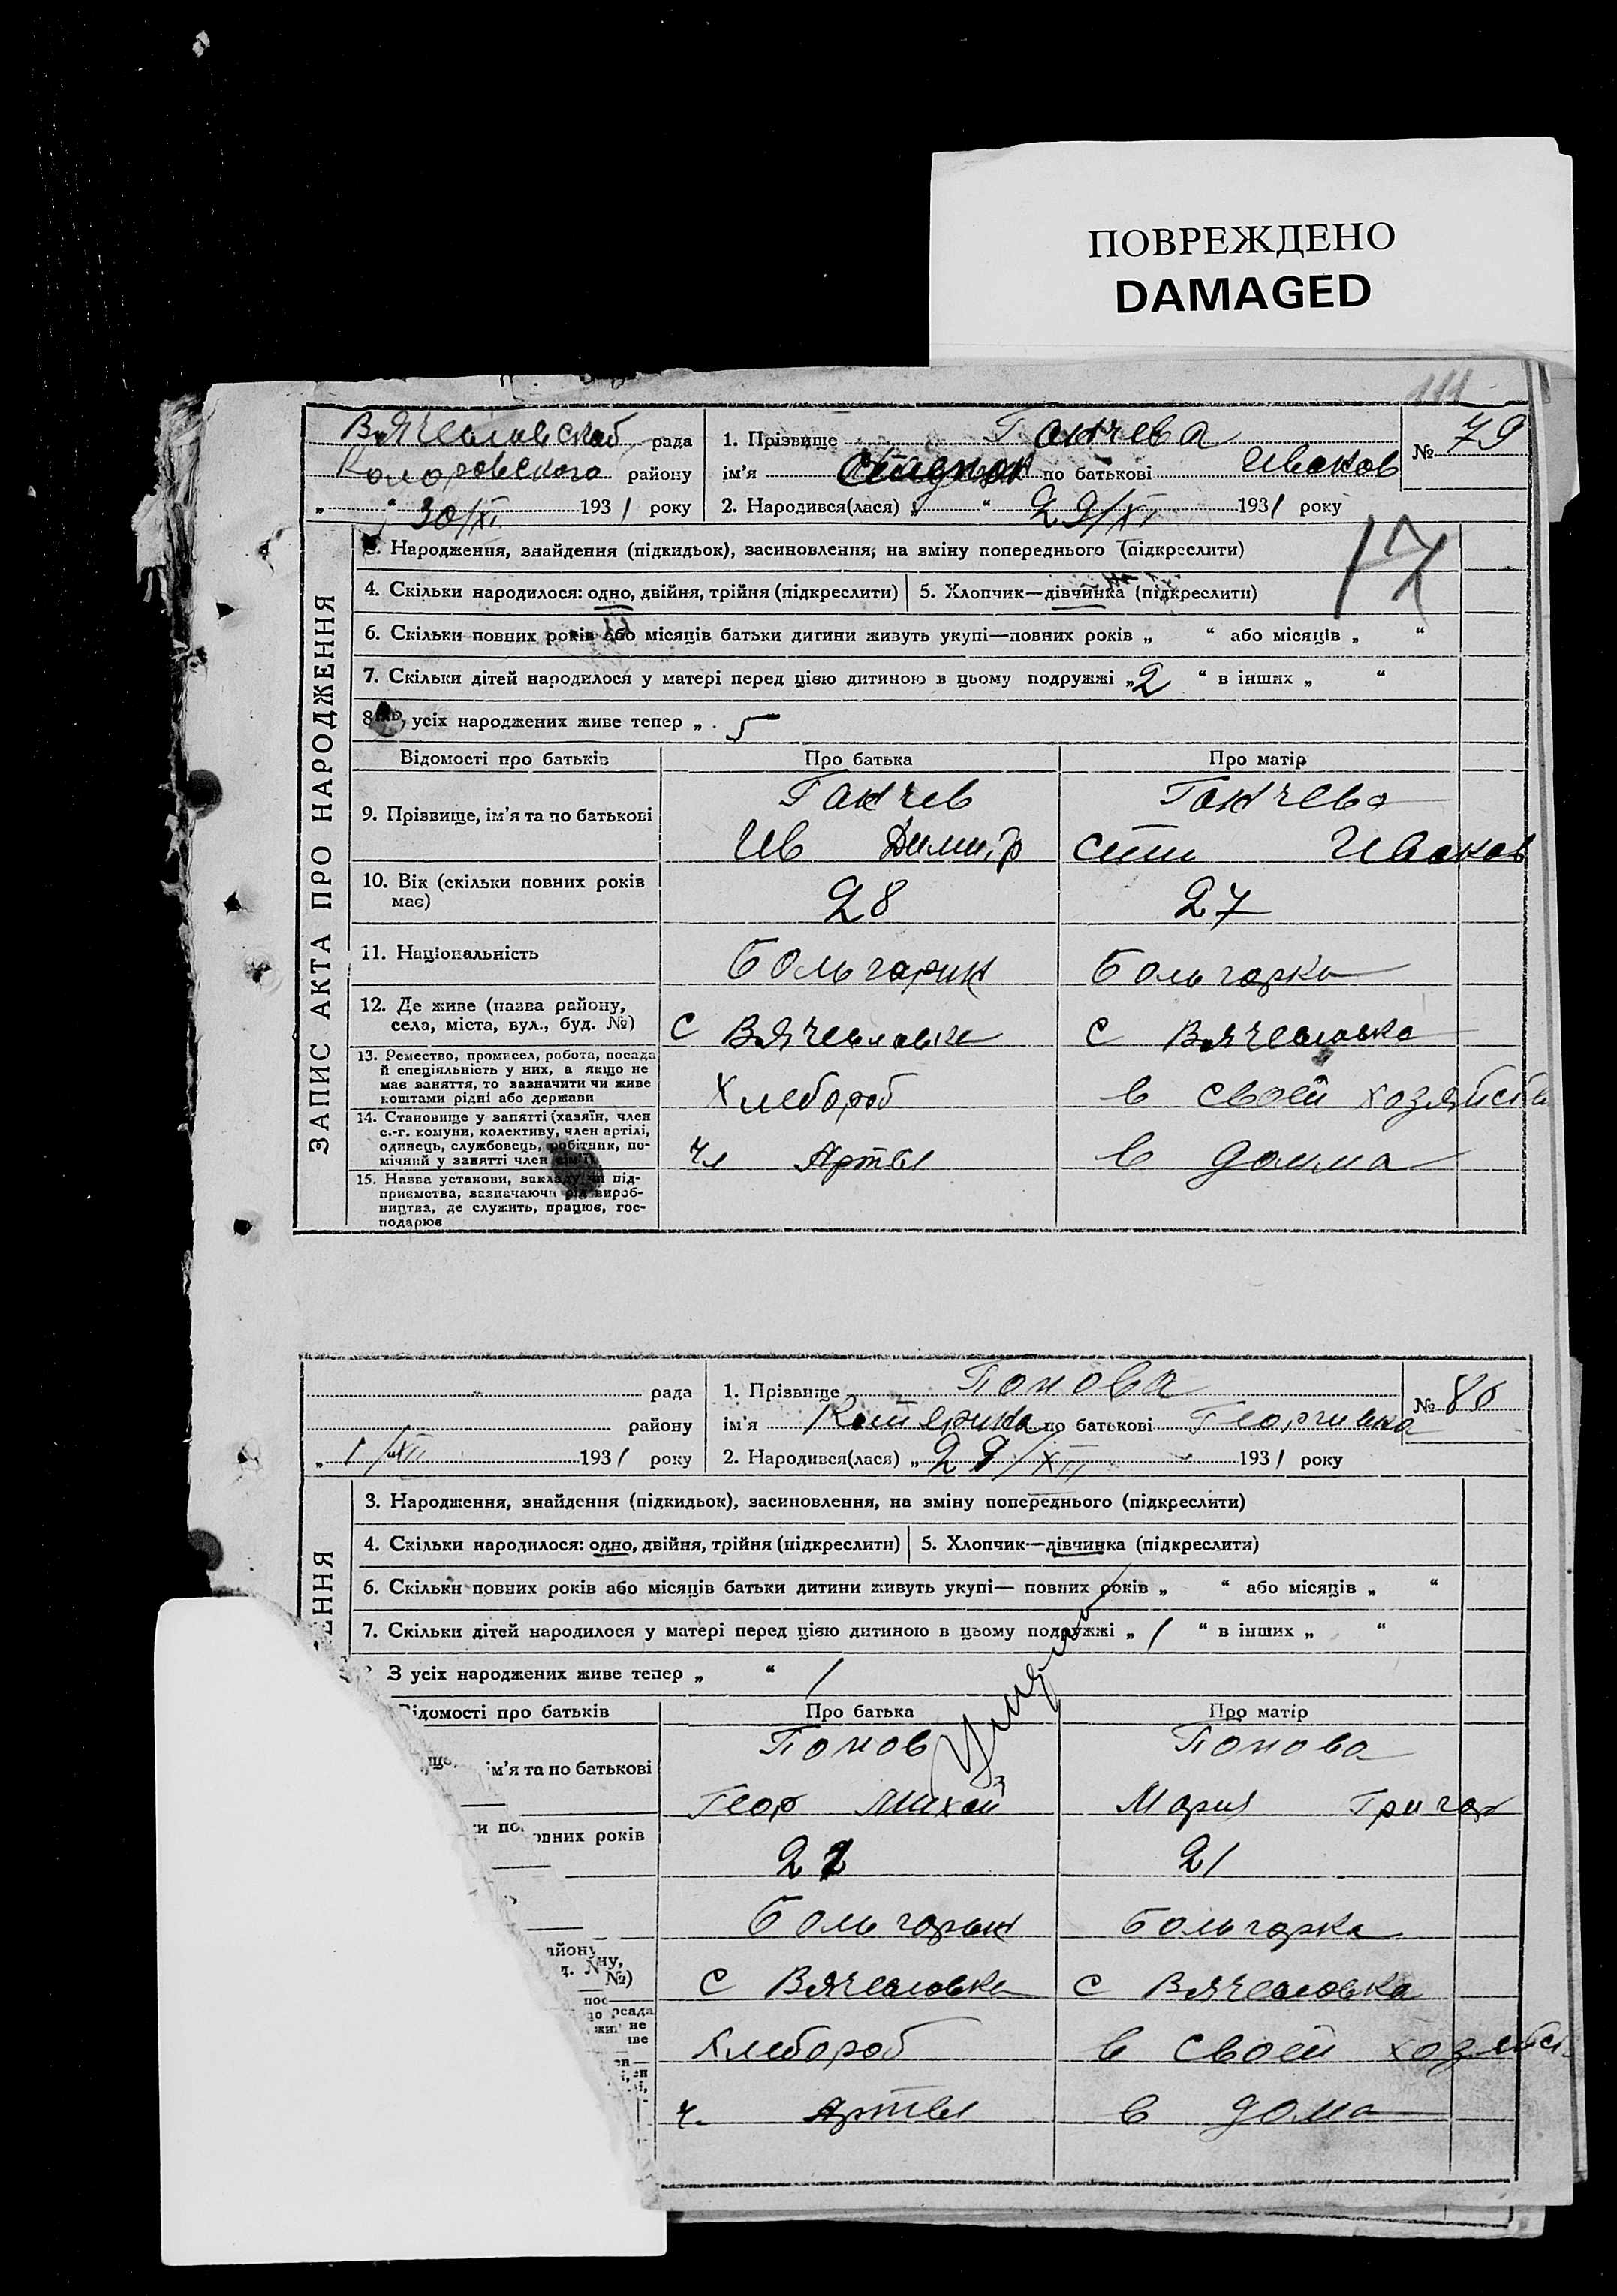 ПОВРЕЖДЕНО
DAMAGED
111
ЗАПИС АКТА ПРО НАРОДЖЕННЯ
Вячеславской рада
района району
30/XI 1931 року
1. Прізвище Ганчева
ім'я по батькові Иванов
2. Народився(лася) „ “ 29/XI 1931 року
№ 79
3. Народження, знайдення (підкидьок), засиновлення, на зміну попереднього (підкреслити)
17
4. Скільки народилося: одно, двійня, трійня (підкреслити) 5. Хлопчик—дівчинка (підкреслити)
6. Скільки повних років або місяців батьки дитини живуть укупі—повних років „ “ або місяців „ “
7. Скільки дітей народилося у матері перед цією дитиною в цьому подружжі „2 “ в інших „ “
8. усіх народжених живе тепер „ 5
Відомості про батьків Про батька Про матір
9. Прізвище, ім'я та по батькові Ганчев Ганчева
Ив Димитр Иванов
10. Вік (скільки повних років має) 28 27
11. Національність Больгарин Больгарка
12. Де живе (назва району, села, міста, вул., буд. №) с Вячеславка с Вячеславка
13. Ремество, промисел, робота, посада й спеціяльність у них, а якщо не має заняття, то зазначити чи живе коштами рідні або держави Хлебороб в своей хозяйств
14. Становище у занятті (хазяїн, член с.-г. комуни, колективу, член артілі, одинець, службовець, робітник, помічний у занятті член сім'ї) чл Артел в дома
15. Назва установи, закладу чи підприємства, зазначаючи рід виробництва, де служить, працює, господарює
рада
району
1/XII 1931 року
1. Прізвище Попова
ім'я Катерина по батькові Георгиевна
2. Народився(лася) „ 29/XII 1931 року
№ 80
3. Народження, знайдення (підкидьок), засиновлення, на зміну попереднього (підкреслити)
4. Скільки народилося: одно, двійня, трійня (підкреслити) 5. Хлопчик—дівчинка (підкреслити)
6. Скільки повних років або місяців батьки дитини живуть укупі— повних років „ “ або місяців „ “
7. Скільки дітей народилося у матері перед цією дитиною в цьому подружжі „ 1 “ в інших „ “
З усіх народжених живе тепер „ “ 1
Відомості про батьків Про батька Про матір
ім'я та по батькові Попов Попова
Геор Михай Мария Григор
повних років 22 21
Больгарин Больгарка
с Вячеславка с Вячеславка
Хлебороб в своей хозяйст
ч. Артел в дома